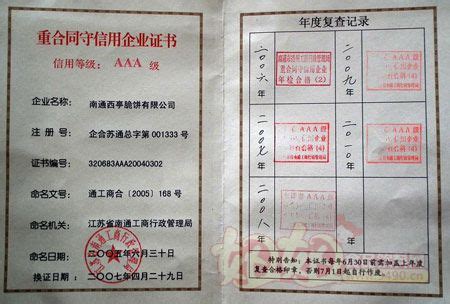 重合同守信用企业证书
信用等级：AAA 级
企业名称：南通西亭脆饼有限公司
注 册 号：企合苏通总字第 001333 号
证书编号：320683AAA20040302
命名文号：通工商合〔2005〕168 号
命名机关：江苏省南通工商行政管理局
命名日期：二〇〇五年六月三十日
换证日期：二〇〇七年四月二十九日
年度复查记录
二〇〇六年
重合同守信用企业
年检合格(2)
二〇〇九年
AAA 级
二〇〇七年
AAA 级
二〇一〇年
AAA 级
二〇〇八年
特别告知：本证书每年6月30日前需加盖上年度
复查合格印章，否则7月1日起自行作废。